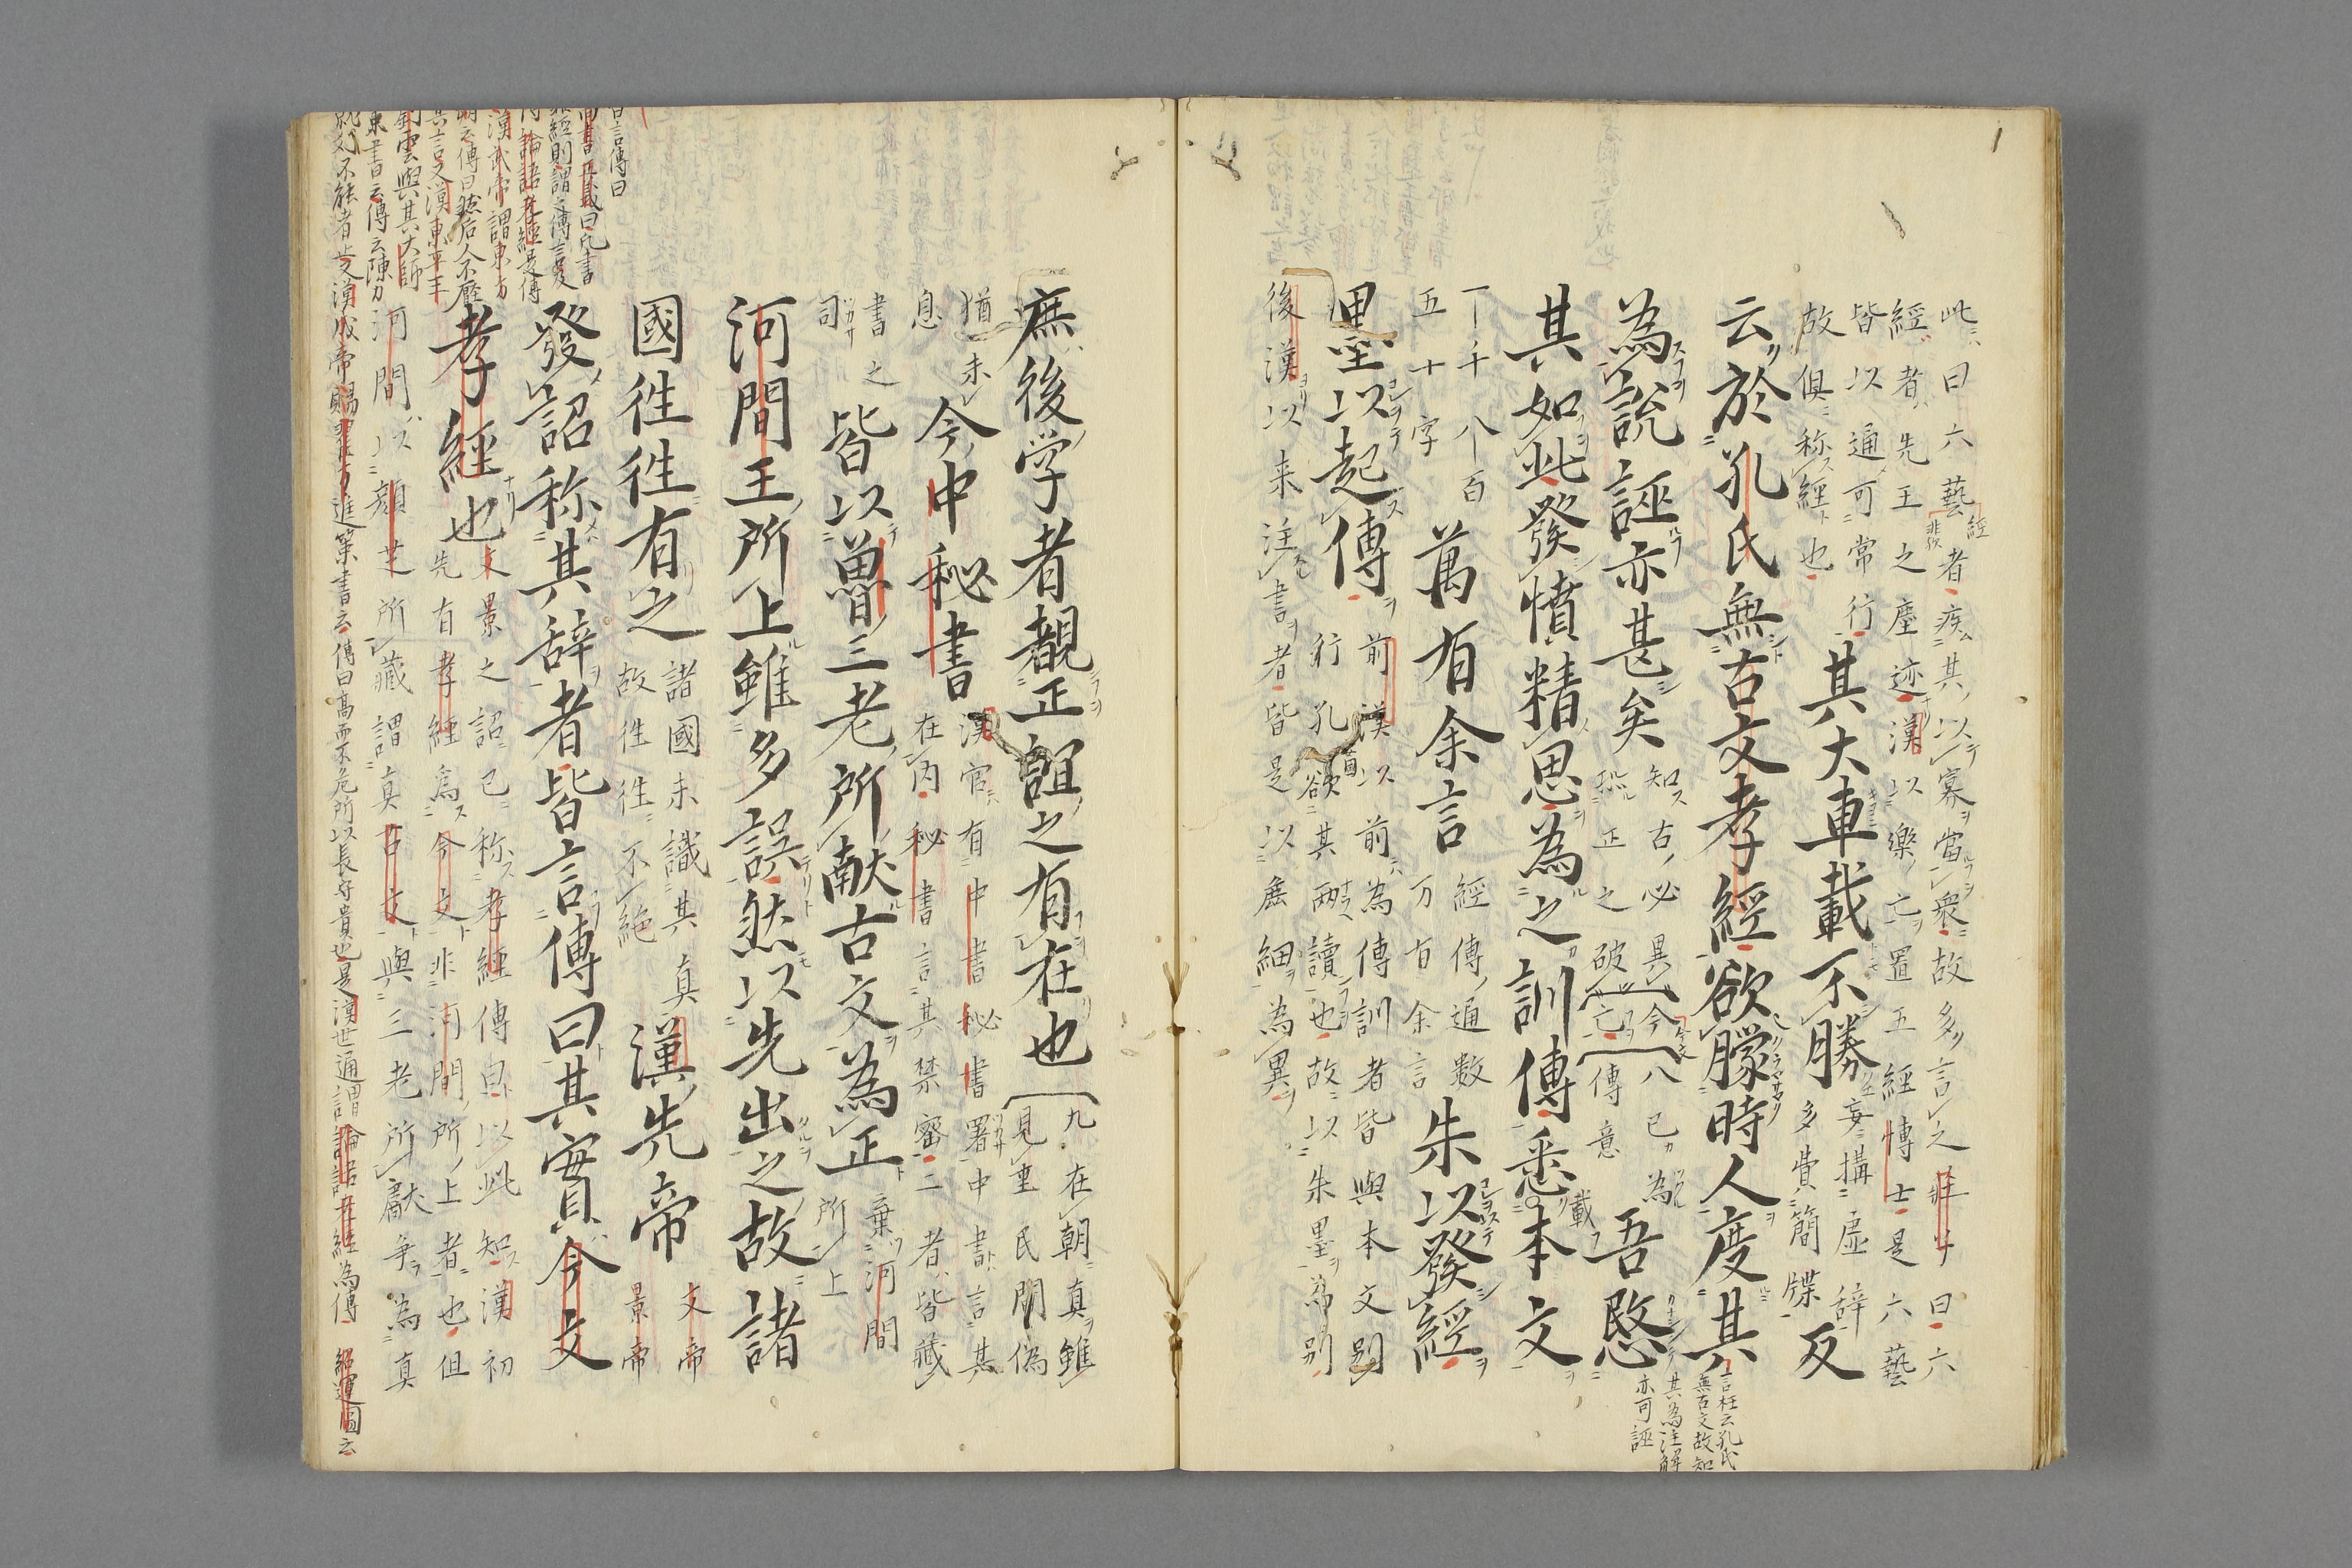 此曰六藝者疾其以寡當衆故多言之莊子曰六
經者先王之塵迹漢以樂亡置五經博士是六藝
皆以通可常行
故俱称經也
其大車載不勝
妄搆虚辞
多費簡牒
反
云於孔氏無古文孝經欲矇時人度其
言枉云孔氏
無古文故知
其為注解
亦可誣
為説誣亦甚矣
知古必異今
恐正之破亡
八已為
傳意
吾愍
其如此發憤精思為之訓傳悉載本文
一千八百
五十字
萬有余言
經傳通数
万有余言
朱以發經
墨以起傳
前漢以前為傳訓者皆與本文別
行孔欲其兩讀也故以朱墨為別
後漢以来注書者皆是以麁細為異
庶後学者覩正誼之有在也
在朝真雖
見重民間偽
猶未
息
今中秘書
漢官有中書秘書署中書言其
在内秘書言其禁密二者皆藏
書之
司
皆以魯三老所献古文為正
棄河間
所上
河間王所上雖多誤然以先出之故諸
國往往有之
諸國未識其真
故往往不絶
漢先帝
文帝
景帝
發詔称其辞者皆言傳曰其實今文
孝經也
文景之詔已称孝經傳曰以此知漢初
先有孝經為今文非河間所上者也但
河間以顔芝所藏謂真古文與三老所獻争為真
曰言傳曰
尚書正義曰凡書
非經則謂之傳言及
傳論語孝經是傳
漢武帝謂東方
朔云傳曰然后人不厭
其言又漢東平王
劉雲與其大師
東書云傳云陳力
就列不能者止又漢成帝賜翟方進策書云傳曰高而不危所以長守貴也是漢世通謂論語孝經為傳
經運圖云